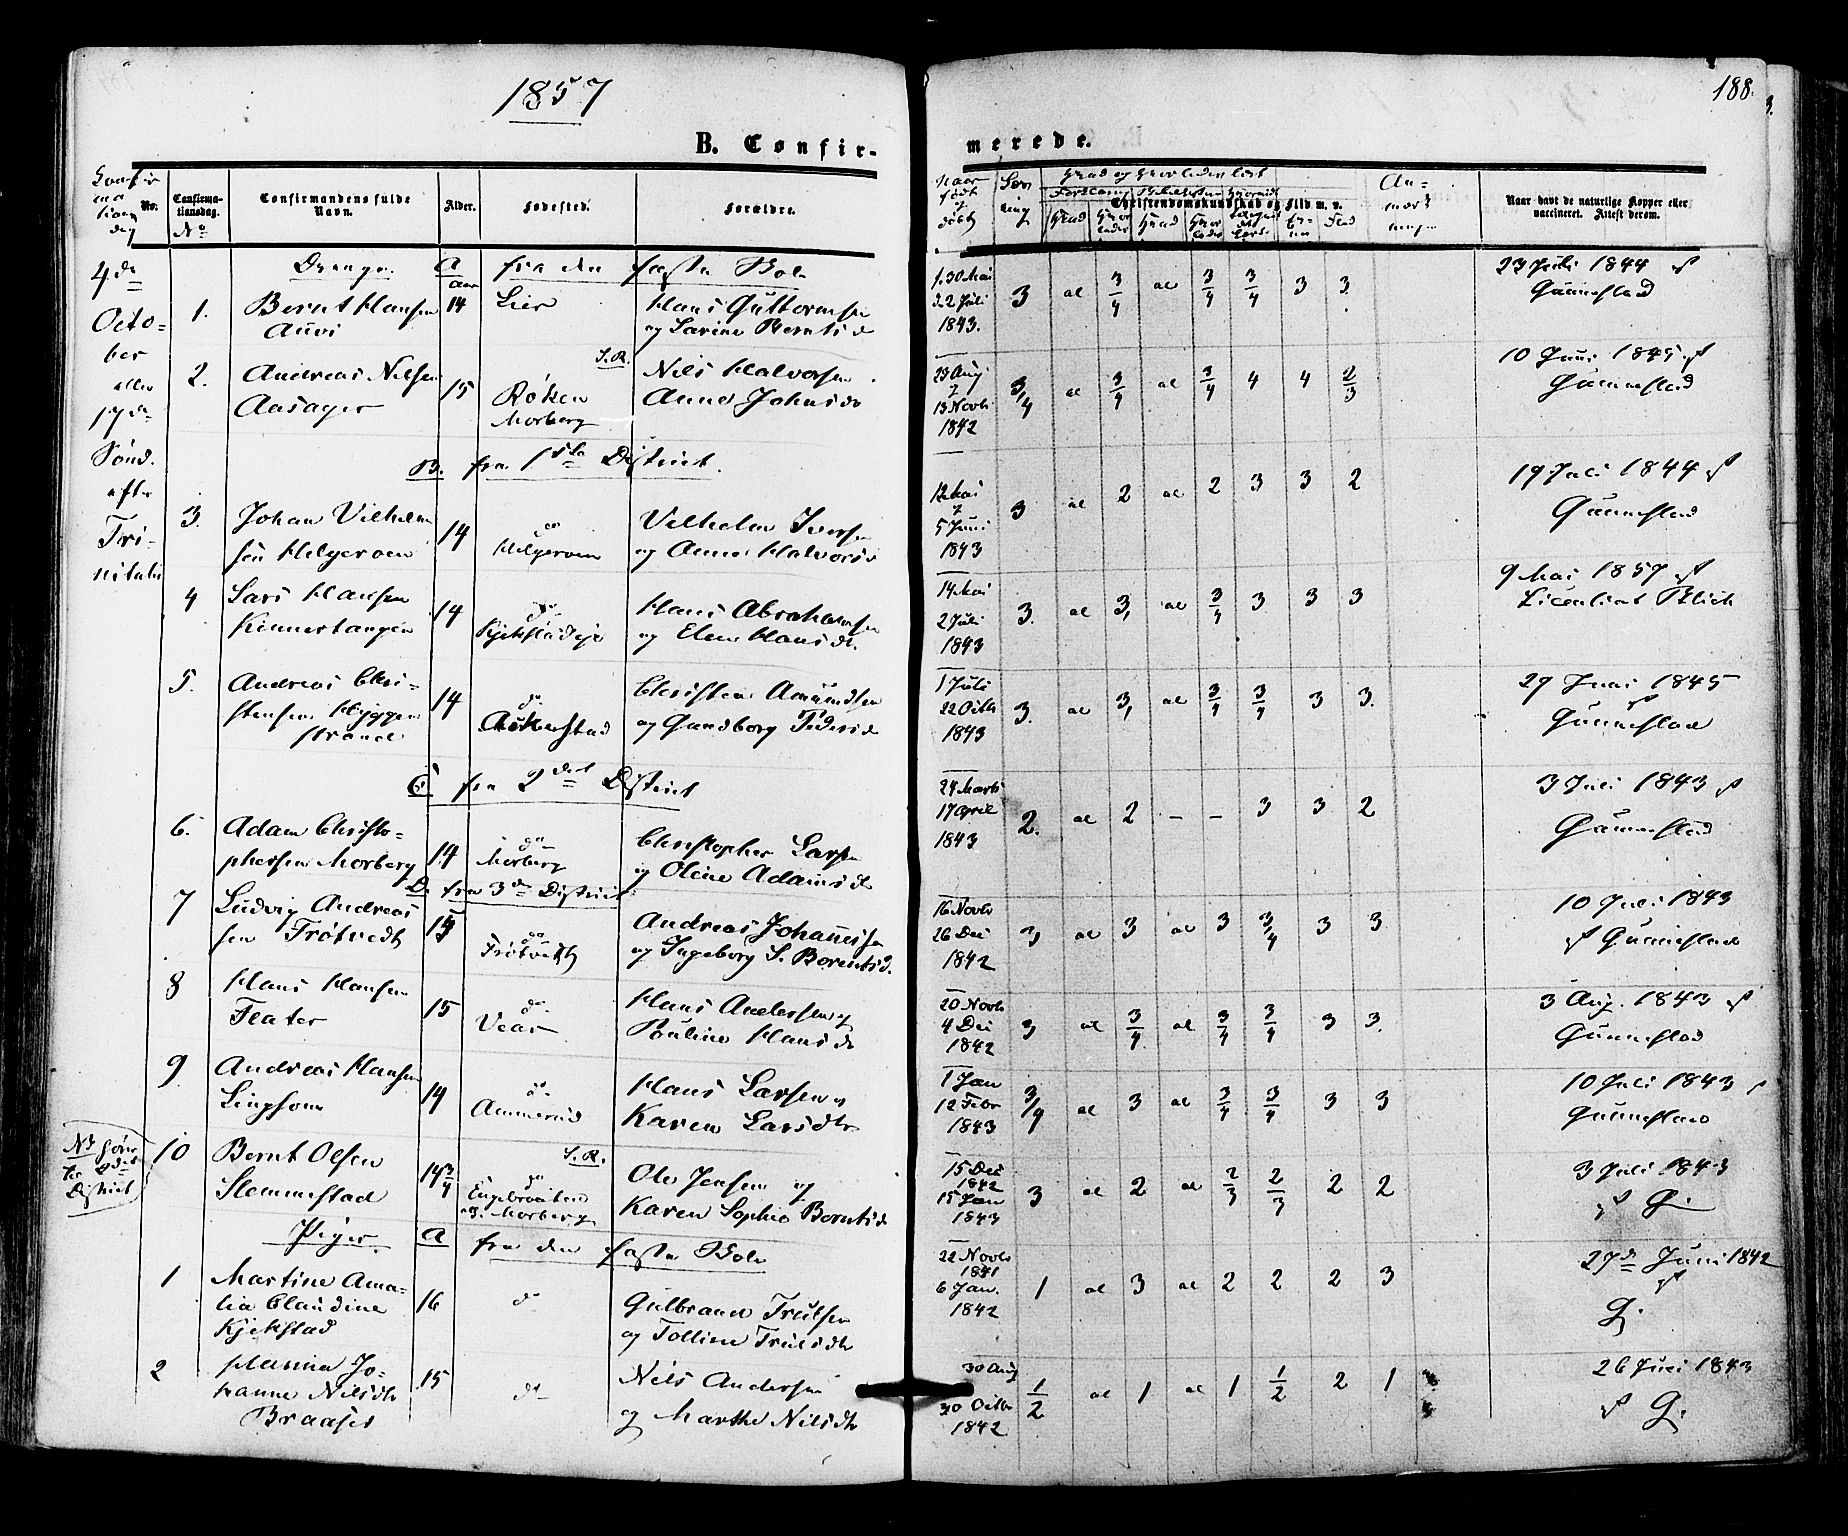 1857
188.
B. Confir-
merede.
No.
Confirma-
tionsdag.
No
Confirmandens fulde
Navn.
Alder.
Fødested.
Forældre.
Naar
født
og
døbt
Christendomskundskab og Flid m. v.
An-
mærk
Naar havt de naturlige Kopper eller
vaccineret. Attest derom.
4de
Octo-
ber
eller
17de
Sønd.
efter
Tri-
nitatis
Drenge. A fra den faste Skole
1. Bernt Hansen 14 Lier Hans Guttormsen
Auvi og Larine Berntsd
f. 30 Mai
d. 2 Juli
1843.
3 al 3/4 al 3/4 3/4 3 3.
23 Juli 1844 af
Gunnestad
S. R.
2. Andreas Nilsen 15 Røken Nils Halvorsen
Aasager Morberg Anne Johnsd
29 Aug
13 Novb
1842
3/4 al 3/4 al 3/4 4 4 2/3
10 Juni 1845 af
Gunnestad
B. fra 1ste District.
3. Johan Vilhelm 14 do Vilhelm Iversen
sen Helgeroen Helgeroen og Anne Halvorsd
12 Mai
5 Juni
1843
3 al 2 al 2 3 3 2
19 Juli 1844 af
Gunnestad
4 Lars Hansen 14 do Hans Abrahamsen
Kinnertangen Kjekstadeje og Elen Hansdt.
14 Mai
2 Juli
1843
3. al 3, al 3/4 3 3 3
9 Mai 1857 af
Licentiat Blich
5. Andreas Chri- 14 do Christen Amundsen
stensen Hyggen Aukenstad og Gundborg Pedersd
strand
1 Juli
22 Octb
1843
3. al 3, al 3/4 3/4 3 3.
27 Juni 1845
af
Gunnestad
C fra 2det District
6. Adam Christo- 14 do Christopher Larsen
phersen Morberg Morberg og Oline Adamsd
24 Marts
17 April
1843
2. al 2 - - 3 3 2
3 Juli 1843 af
Gunnestad
D. fra 3de District
7 Ludvig Andreas 15 do Andreas Johannesen
sen Trøtvedt Trøtvedt og Ingeborg S. Berntsd.
16 Novb
26 Dec
1842
3 al 3 al 3 3/4 3 3
10 Juli 1843
af Gunnestad
8 Hans Hansen 15 do Hans Andersen og
Flater Vear Pauline Hansd
20 Novb
4 Dec
1842
3 al 3/4 al 3/4 3/4 3 3.
3 Aug. 1843 af
Gunnestad
9 Andreas Hansen 14 do Hans Larsen og
Lingsom Ammerud Karen Larsdtr
1 Jan
12 Febr
1843
3/4 al 3 al 3/4 3/4 3 3
10 Juli 1843 af
Gunnestad
NB hører
til 2det
District
S. R.
10 Bernt Olsen 14 3/4 do Ole Jensen og
Slemmestad Engebraaten Karen Sophie Berntsd
u. Morberg
15 Dec
1842
15 Jan
1843
3 al 2 al 2/3 2/3 2 2
3 Juli 1843
af G.
Piger. A fra den faste Skole
1 Martine Ama- 16 do Gulbrand Trulsen
lia Claudine og Tolline Trulsdtr
Kjekstad
22 Novb
1841
6 Jan.
1842
1 al 3 al 2 2 2 3
27de Juni 1842
af
G.
2 Hanna Jo- 15 do Nils Andersen
hanne Nilsdtr og Marthe Nilsdtr
Braaset
30 Aug
30 Octb
1842
1/2 al 1 al 1 1/2 2 1
26 Juni 1843
af G.